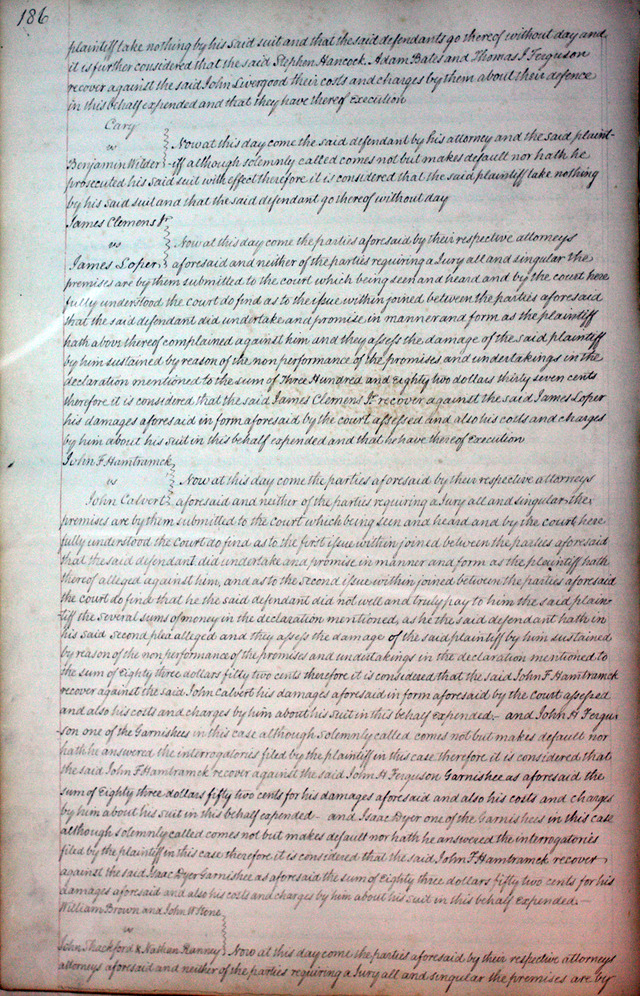 186
plaintiff take nothing by his said suit and that the said defendants go thereof without day and
it is further considered that the said Stephen Hancock Adam Bates and Thomas J Ferguson
recover against the said John Livergood their costs and charges by them about their defence
in this behalf expended and that they have thereof execution
Cary
vs Now at this day come the said defendant by his attorney and the said plaint-
Benjamin Wilder -iff although solemnly called comes not but makes default nor hath he
prosecuted his said suit with effect therefore it is considered that the said plaintiff take nothing
by his said suit and that the said defendant go thereof without day
James Clemens Jr
vs Now at this day come the parties aforesaid by their respective attorneys
James Loper aforesaid and neither of the parties requiring a Jury all and singular the
premises are by them submitted to the court which being seen and heard and by the court here
fully understood the court do find as to the issue within joined between the parties aforesaid
that the said defendant did undertake and promise in manner and form as the plaintiff
hath above thereof complained against him and they assess the damage of the said plaintiff
by him sustained by reason of the nonperformance of the promises and undertakings in the
declaration mentioned to the sum of Three Hundred and Eighty two dollars thirty seven cents
therefore it is considered that the said James Clemens Jr recover against the said James Loper
his damages aforesaid in form aforesaid by the court assessed and also his costs and charges
by him about his suit in this behalf expended and that he have thereof execution
John F Hamtramck
vs Now at this day come the parties aforesaid by their respective attorneys
John Calvert aforesaid and neither of the parties requiring a Jury all and singular the
premises are by them submitted to the Court which being seen and heard and by the court here
fully understood the Court do find as to the first issue within joined between the parties aforesaid
that the said defendant did undertake and promise in manner and form as the plaintiff hath
thereof alleged against him, and as to the second issue within joined between the parties aforesaid
the court do find that he the said defendant did not well and truly pay to him the said plain-
tiff the several sums of money in the declaration mentioned, as he the said defendant hath in
his said second plea alleged and they assess the damage of the said plaintiff by him sustained
by reason of the nonperformance of the promises and undertakings in the declaration mentioned to
the sum of Eighty three dollars fifty two cents therefore it is considered that the said John F Hamtramck
recover against the said John Calvert his damages aforesaid in form aforesaid by the Court assessed
and also his costs and charges by him about his suit in this behalf expended,- and John H Fergu-
-son one of the Garnishees in this case although solemnly called comes not but makes default nor
hath he answered the interrogatories filed by the plaintiff in this case therefore it is considered that
the said John F Hamtramck recover against the said John H Ferguson Garnishee as aforesaid the
sum of Eighty three dollars fifty two cents for his damages aforesaid and also his costs and charges
by him about his suit in this behalf expended - and Isaac Dyer one of the Garnishees in this case
although solemnly called comes not but makes default nor hath he answered the interrogatories
filed by the plaintiff in this case therefore it is considered that the said John F Hamtramck recover
against the said Isaac Dyer Garnishee as aforesaid the sum of Eighty three dollars fifty two cents for his
damages aforesaid and also his costs and charges by him about his suit in this behalf Expended.-
William Brown and John W Hone
vs
John Shackford & Nathan Ranney Now at this day come the parties aforesaid by their respective attorneys
attorneys aforesaid and neither of the parties requiring a Jury all and singular the premises are by